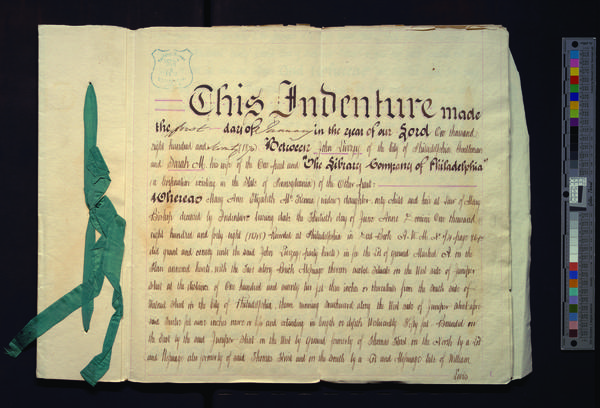 This Indenture made
the first day of January in the year of our Lord One thousand
eight hundred and (18 ) Between John Livezey of the City of Philadelphia Gentleman
and Sarah M. his wife of the One part and "The Library Company of Philadelphia"
(a Corporation existing in the State of Pennsylvania) of the Other part:
Whereas Mary Ann Elizabeth Mc Kenna (widow) daughter only child and heir at law of Mary
Bishop deceased by Indenture bearing date the Thirtieth day of June Anno Domini One thousand
eight hundred and forty eight (1848) Recorded at Philadelphia in Deed Book A. W. M. No page
did grant and convey unto the said John Livezey (party hereto) in fee the Lot of ground Marked A on the
Plan annexed hereto, with the Two story Brick Messuage thereon erected Situate on the West side of Juniper
Street at the distance of One hundred and twenty six feet inches or thereabouts from the South side of
Walnut Street in the City of Philadelphia, thence running Southward along the West side of Juniper Street afore
said feet inches more or less and extending in length or depth Westwardly Fifty feet. Bounded on
the East by the said Juniper Street on the West by Ground formerly of Thomas on the North by a Lot
and Messuage also formerly of said Thomas and on the South by a Lot and Messuage late of William
Lewis